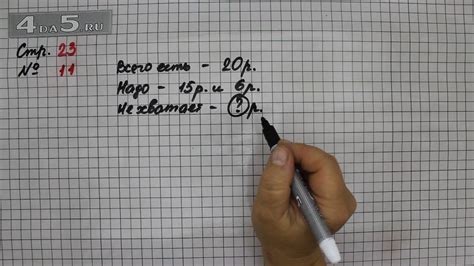 4DA5.RU
Стр. 23
№ 11
Всего есть - 20р.
Надо - 15р. и 6р.
Не хватает - ? р.